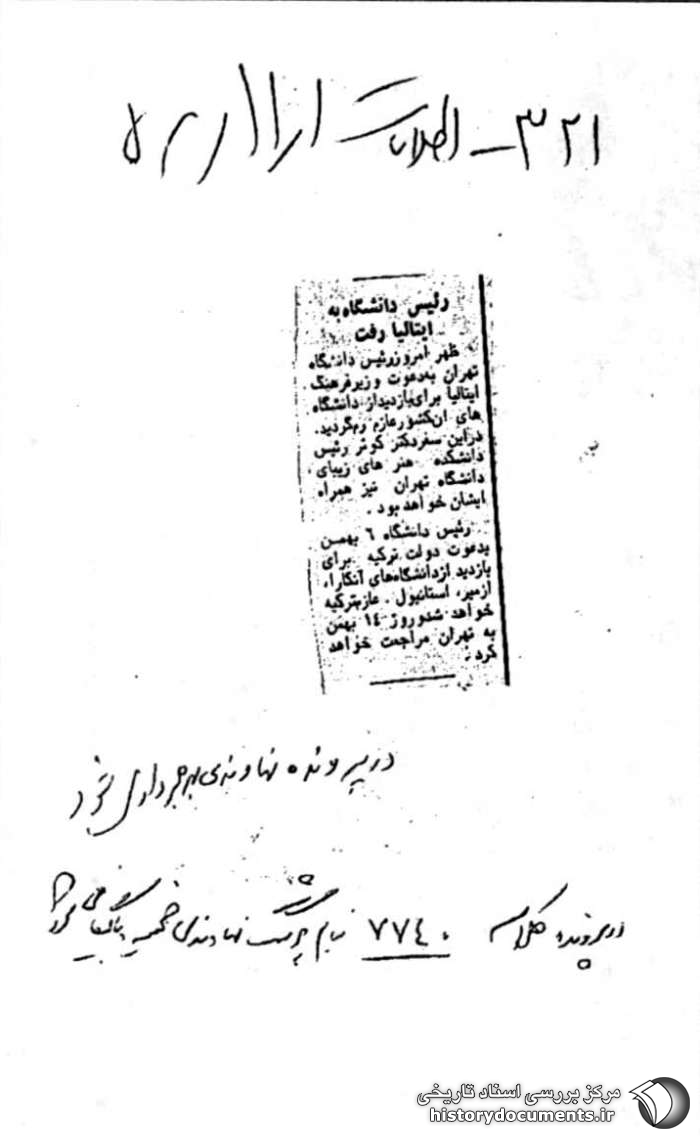 ۳۲۱ - اطلاعات
رئیس دانشگاه به
ایتالیا رفت
ظهر امروز رئیس دانشگاه
تهران به دعوت وزیر فرهنگ
ایتالیا برای بازدید از دانشگاه
های آن کشور عازم رم گردید.
در این سفر دکتر کوثر رئیس
دانشکده هنر های زیبای
دانشگاه تهران نیز همراه
ایشان خواهد بود.
رئیس دانشگاه ۶ بهمن
بدعوت دولت ترکیه برای
بازدید از دانشگاه‌های آنکارا،
ازمیر، استانبول. عازم ترکیه
خواهد شد و روز ۱٤ بهمن
به تهران مراجعت خواهد
کرد.
در پرونده نهاوندی بهره‌برداری شود
در پرونده کلاسه ۷۷٤۰ بنام هوشنگ نهاوندی ضمیمه و بایگانی گردد
مرکز بررسی اسناد تاریخی
historydocuments.ir